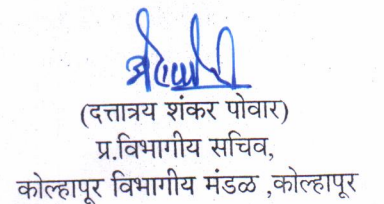 (दत्तात्रय शंकर पोवार)
प्र.विभागीय सचिव,
कोल्हापूर विभागीय मंडळ ,कोल्हापूर